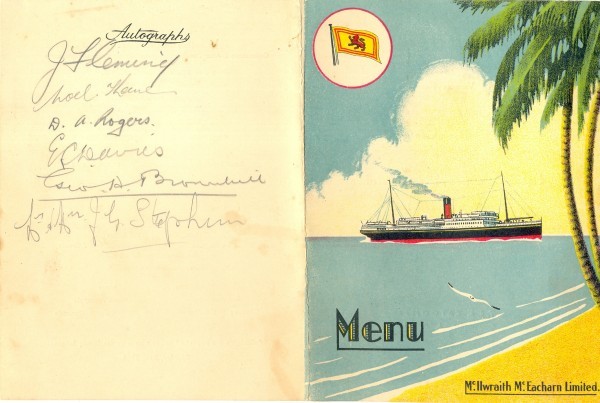 Autographs
J Fleming
Noel
D. A. Rogers.
E C Davies
Geo. H. Bromhill
J. G. Stephen
Menu
McIlwraith McEacharn Limited.